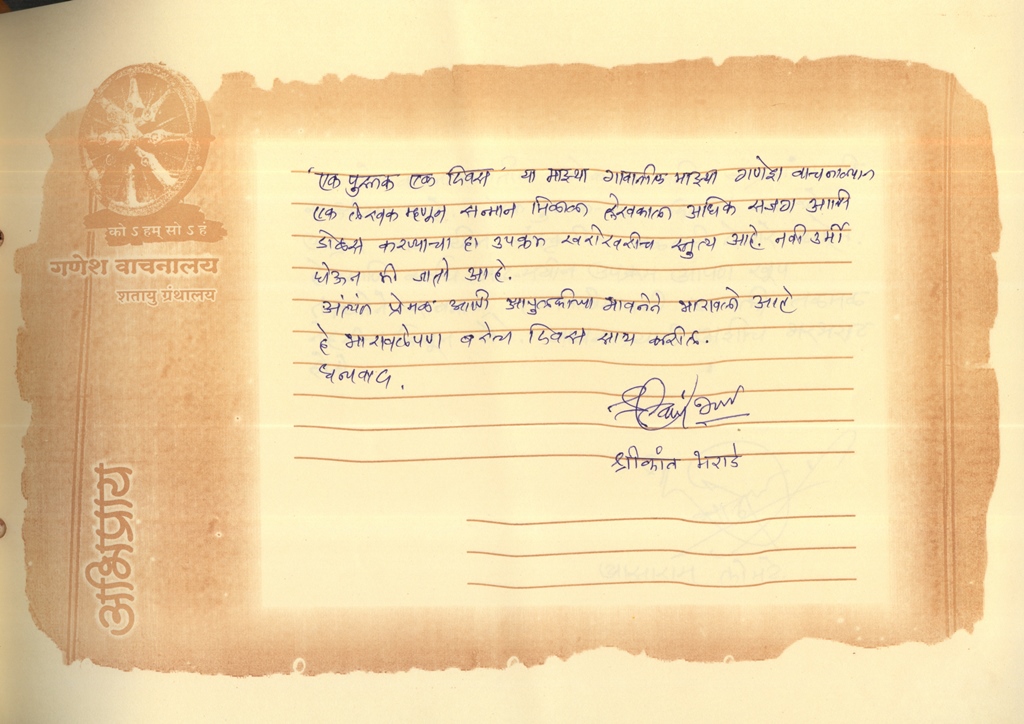 को ऽ हम् सो ऽ हं
गणेश वाचनालय
शतायु ग्रंथालय
अभिप्राय
'एक पुस्तक एक दिवस' या माझ्या गावातील माझ्या गणेश वाचनालयात
एक लेखक म्हणून सन्मान मिळाला लेखकाला अधिक सजग आणि
डोळस करण्याचा हा उपक्रम खरोखरीच स्तुत्य आहे. नवी उर्मी
घेऊन मी जातो आहे.
अत्यंत प्रेमळ आणि आपुलकीच्या भावनेने भारावलो आहे
हे भारावलेपण बरेच दिवस साथ करील.
धन्यवाद.
श्रीकांत भराडे